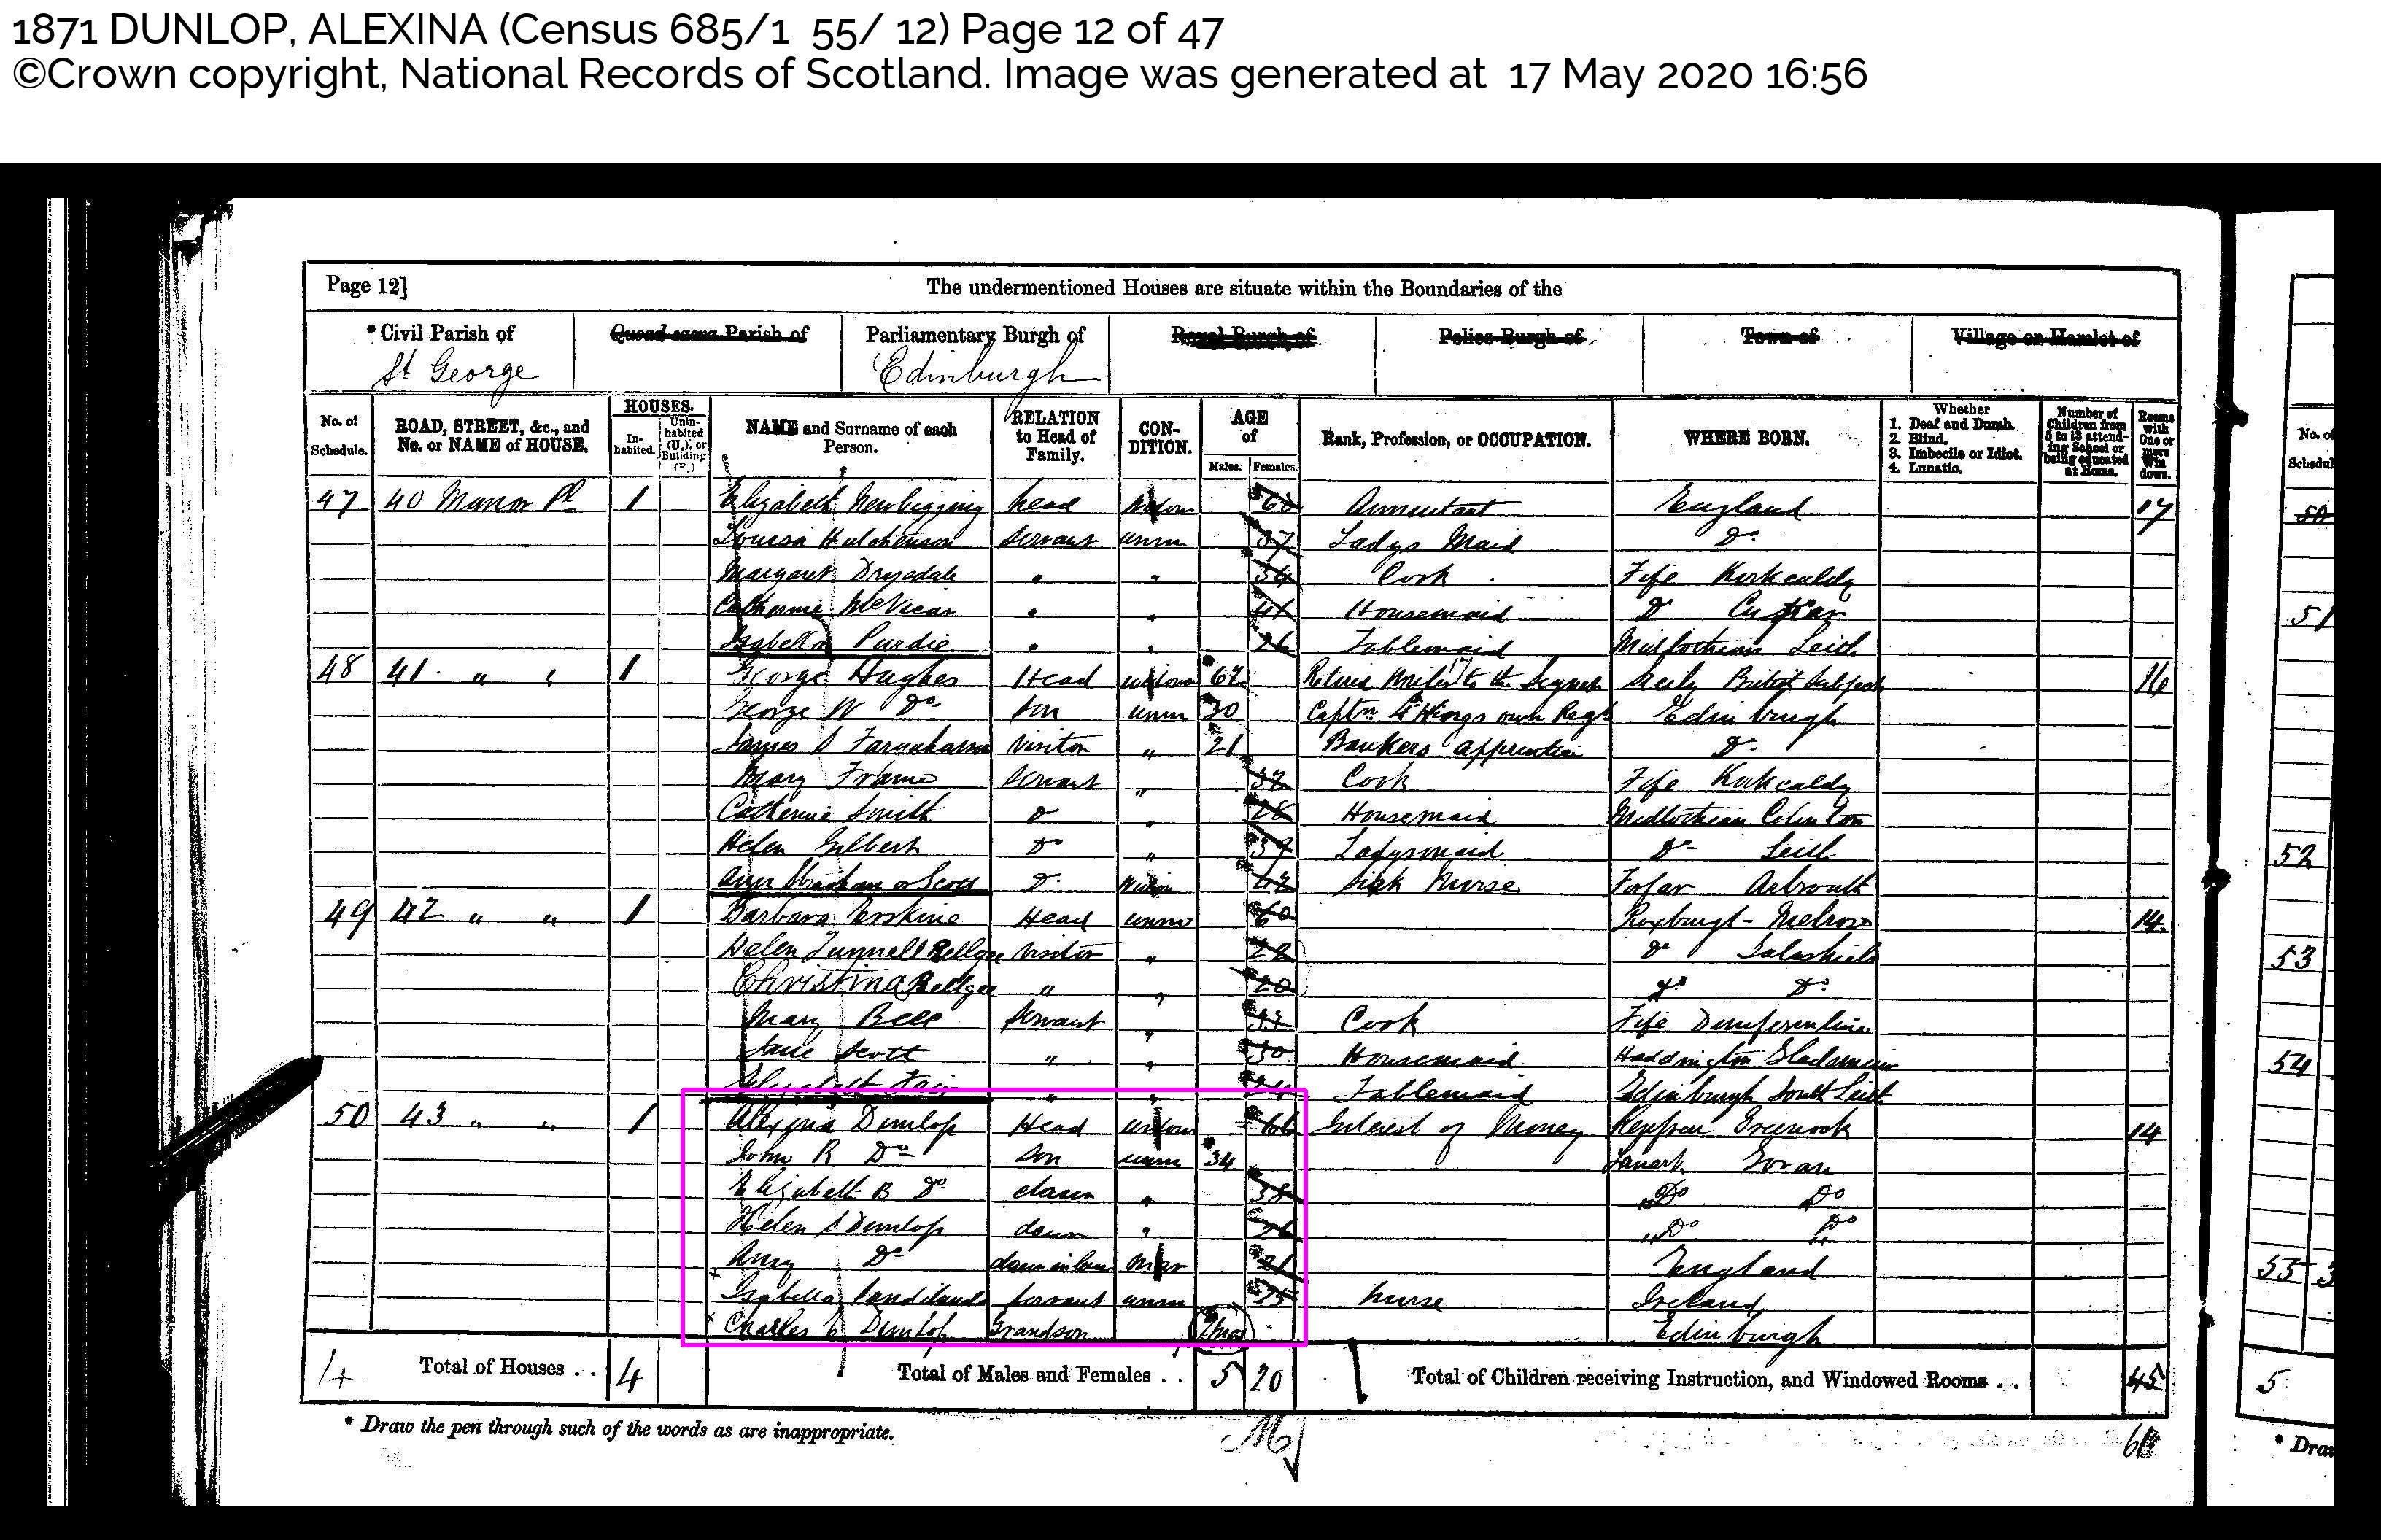 1871 DUNLOP, ALEXINA (Census 685/1 55/ 12) Page 12 of 47
©Crown copyright, National Records of Scotland. Image was generated at 17 May 2020 16:56
Page 12]
The undermentioned Houses are situate within the Boundaries of the
*Civil Parish of Quoad sacra Parish of Parliamentary Burgh of Royal Burgh of Police Burgh of Town of Village or Hamlet of
St George Edinburgh
No. of Schedule. ROAD, STREET, &c., and No. or NAME of HOUSE. HOUSES. Inhabited. Uninhabited (U.), or Building (B.) NAME and Surname of each Person. RELATION to Head of Family. CONDITION. AGE of Males. Females. Rank, Profession, or OCCUPATION. WHERE BORN. Whether 1. Deaf and Dumb. 2. Blind. 3. Imbecile or Idiot. 4. Lunatic. Number of Children from 5 to 13 attending School or being educated at Home. Rooms with One or more Windows.
47 40 Manor Pl 1 Elizabeth Newbigging head Widow 60 Annuitant England 17
Louisa Hutchinson Servant unm 37 Ladys Maid Do
Margaret Drysdale " " 34 Cook Fife Kirkcaldy
Catherine McVicar " " 41 Housemaid Do Cupar
Isabella Purdie " " 26 Tablemaid Midlothian Leith
48 41 " " 1 George Hughes Head widower 62 Retired Writer to the Signet Sicily British Subject 16
George W Do Son unm 30 Captn 4th Kings own Regt Edinburgh
James S Farquharson Visitor " 21 Bankers apprentice Do
Mary Frame Servant " 32 Cook Fife Kirkcaldy
Catherine Smith Do " 28 Housemaid Midlothian Colinton
Helen Gilbert Do " 39 Ladysmaid Do Leith
Ann or Scott Do Widow 42 Sick Nurse Forfar Arbroath
49 42 " " 1 Barbara Erskine Head unm 60 Roxburgh Melrose 14
Helen Visitor " 22 Do Galashiels
Christina " " 20 Do Do
Mary Bell Servant " 33 Cook Fife Dunfermline
Jane Scott " " 30 Housemaid Haddington Gladsmuir
Elizabeth " " 24 Tablemaid Edinburgh South Leith
50 43 " " 1 Alexina Dunlop Head widow 66 Interest of Money Renfrew Greenock 14
John R Do Son unm 34 Lanark Govan
Elizabeth B Do daur " 38 Do Do
Helen S Dunlop daur " 26 Do Do
Amy Do daur in law mar 21 England
Isabella Sandilands Servant unm 25 Nurse Ireland
Charles Dunlop Grandson Edinburgh
Total of Houses . . 4 Total of Males and Females . . 5 20 Total of Children receiving Instruction, and Windowed Rooms . . 45
* Draw the pen through such of the words as are inappropriate.
61
No. of
Schedul
50
51
52
53
54
55 3
5
* Draw